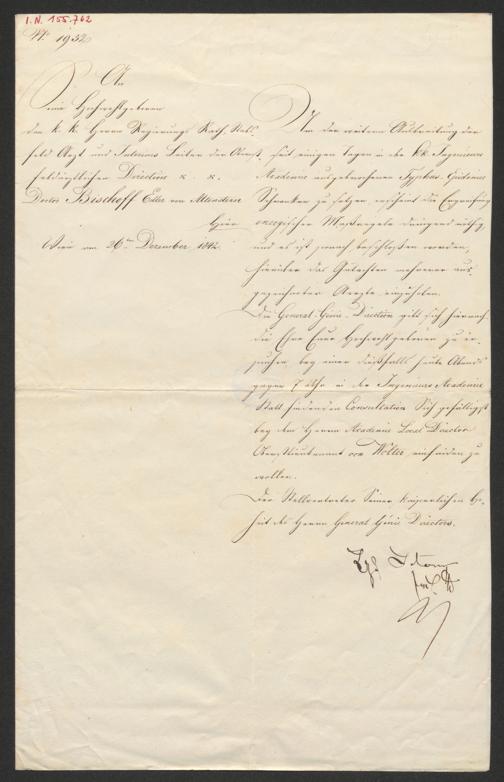 I.N. 155.762
Nr. 1932
An
Seine Hochwohlgeboren
den k. k. Herrn Regierungs Rath, Stabs
feld Arzt und Interims Leiter der Oberst
feldärztlichen Direction &. &.
Doctor Bischoff Edler von Altenstern
Hier
Wien am 26ten Dezember 1842.
Um der weitern Ausbreitung der
seit einigen Tagen in der k.k. Ingenieurs
Academie ausgebrochenen Typhus-Epidemie
Schranken zu setzen erscheint die Ergreifung
energischer Maßregeln dringend nöthig,
und es ist sonach beschlossen worden,
hierüber das Gutachten mehrerer aus-
gezeichneter Aerzte einzuholen.
Die General-Genie-Direction gibt sich hiernach
die Ehre Euer Hochwohlgeboren zu er-
suchen, bey einer dießfalls heute Abends
gegen 7 Uhr in der Ingenieurs Academie
Statt findenden Consultation Sich gefälligst
bey dem Herrn Academie Local Director
Oberstlieutenant von Wolter einfinden zu
wollen.
Der Stellvertreter Seiner kaiserlichen Ho-
heit des Herrn General Genie Directors.